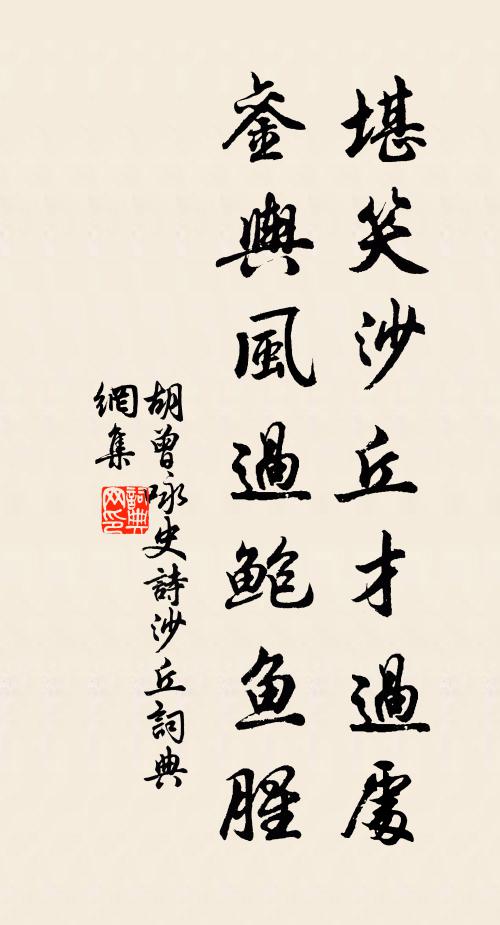 堪笑沙丘才過處
銮輿風過鮑魚腥
胡曾咏史詩沙丘詞典
網集
詞典
网印